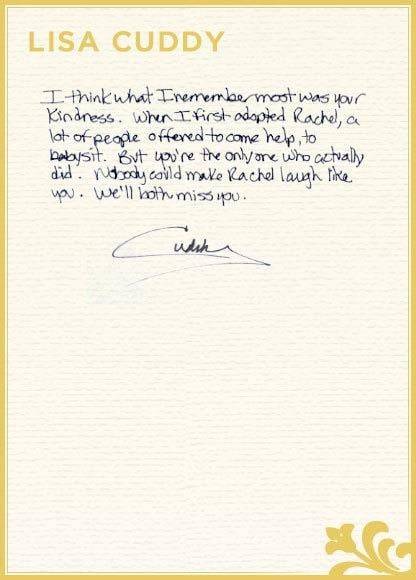 LISA CUDDY
I think what I remember most was your
kindness. When I first adopted Rachel, a
lot of people offered to come help, to
babysit. But you're the only one who actually
did. Nobody could make Rachel laugh like
you. We'll both miss you.
Cuddy